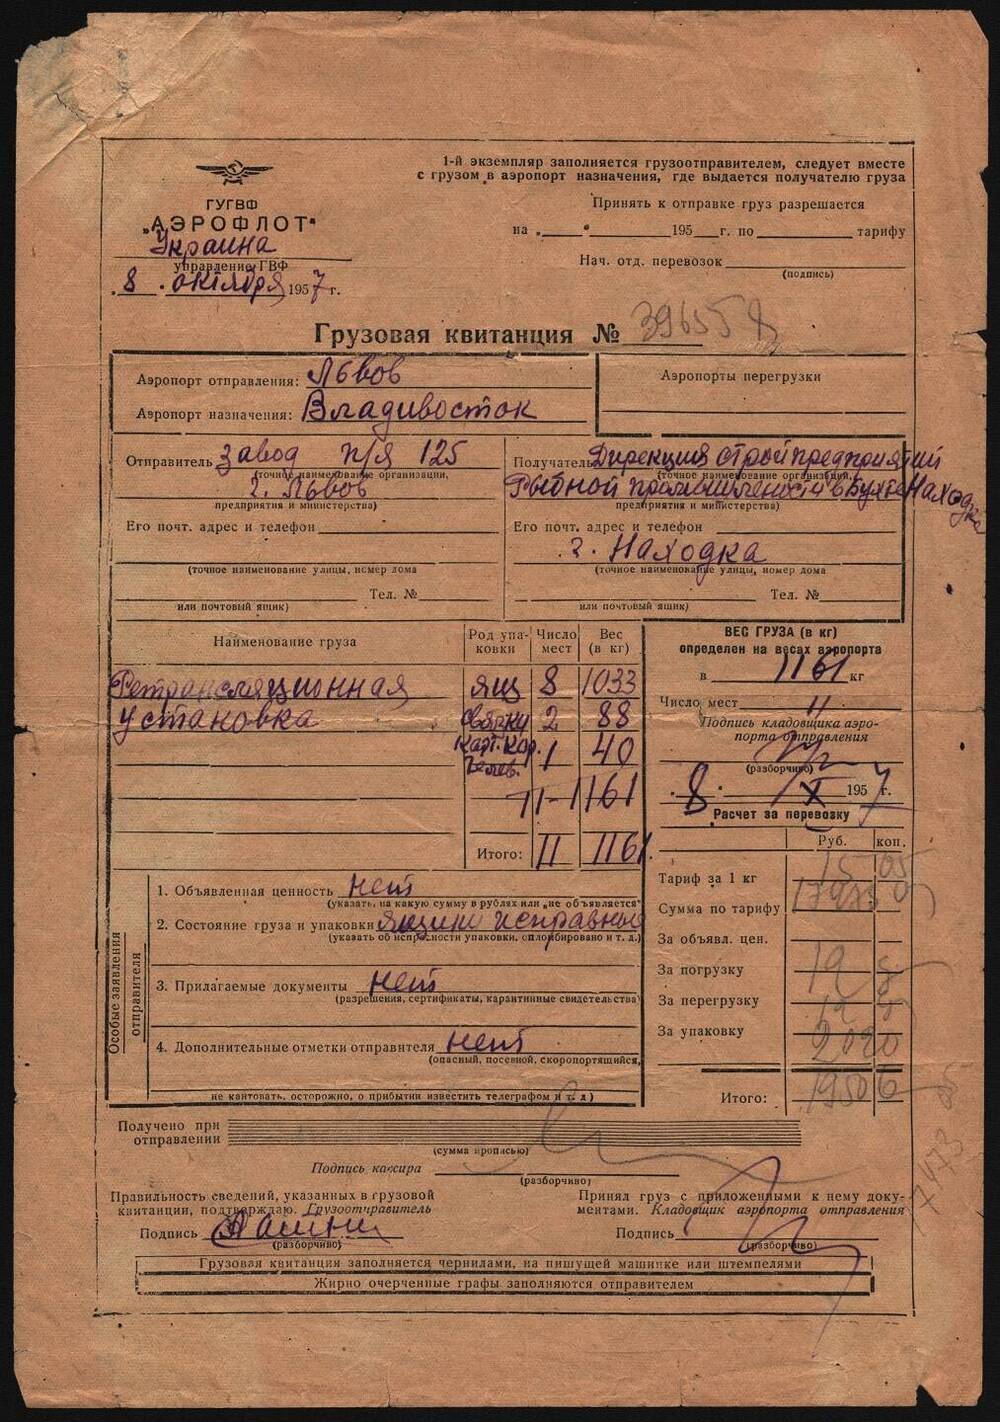 1-й экземпляр заполняется грузоотправителем, следует вместе
с грузом в аэропорт назначения, где выдается получателю груза
ГУГВФ
„АЭРОФЛОТ“
Украина
управление ГВФ
8 октября 1957 г.
Принять к отправке груз разрешается
на „ “ 195 г. по тарифу
Нач. отд. перевозок
(подпись)
Грузовая квитанция № 39655
Аэропорт отправления: Львов
Аэропорт назначения: Владивосток
Аэропорты перегрузки
Отправитель завод п/я 125
(точное наименование организации,
г. Львов
предприятия и министерства)
Его почт. адрес и телефон
(точное наименование улицы, номер дома
Тел. №
или почтовый ящик)
Получатель Дирекция стройпредприятий
(точное наименование организации,
Рыбной промышленост в Бухте Находка
предприятия и министерства)
Его почт. адрес и телефон
г. Находка
(точное наименование улицы, номер дома
Тел. №
или почтовый ящик)
Наименование груза Род упаковки Число мест Вес (в кг)
Ретрансляционная ящ 8 1033
установка связки 2 88
карт. кор. 1 40
11-1161
Итого: 11 1161.
ВЕС ГРУЗА (в кг)
определен на весах аэропорта
в 1161 кг
Число мест 11
Подпись кладовщика аэро-
порта отправления
(разборчиво)
8 X 1957 г.
Расчет за перевозку
Руб. коп.
Тариф за 1 кг 15 05
Сумма по тарифу
За объявл. цен.
За погрузку
За перегрузку
За упаковку
Итого:
Особые заявления
отправителя
1. Объявленная ценность нет
(указать, на какую сумму в рублях или „не объявляется“
2. Состояние груза и упаковки ящики исправные
(указать об испр ности упаковки, опломбировано и т. д.)
3. Прилагаемые документы нет
(разрешения, сертификаты, карантинные свидетельства
4. Дополнительные отметки отправителя нет
(опасный, посевной, скоропортящийся,
не кантовать, осторожно, о прибытии известить телеграфом и т. д)
Получено при
отправлении
(сумма прописью)
Подпись кассира
(разборчиво)
Правильность сведений, указанных в грузовой
квитанции, подтверждаю. Грузоотправитель
Подпись
(разборчиво)
Принял груз с приложенными к нему доку-
ментами. Кладовщик аэропорта отправления
Подпись
(разборчиво)
Грузовая квитанция заполняется чернилами, на пишущей машинке или штемпелями
Жирно очерченные графы заполняются отправителем